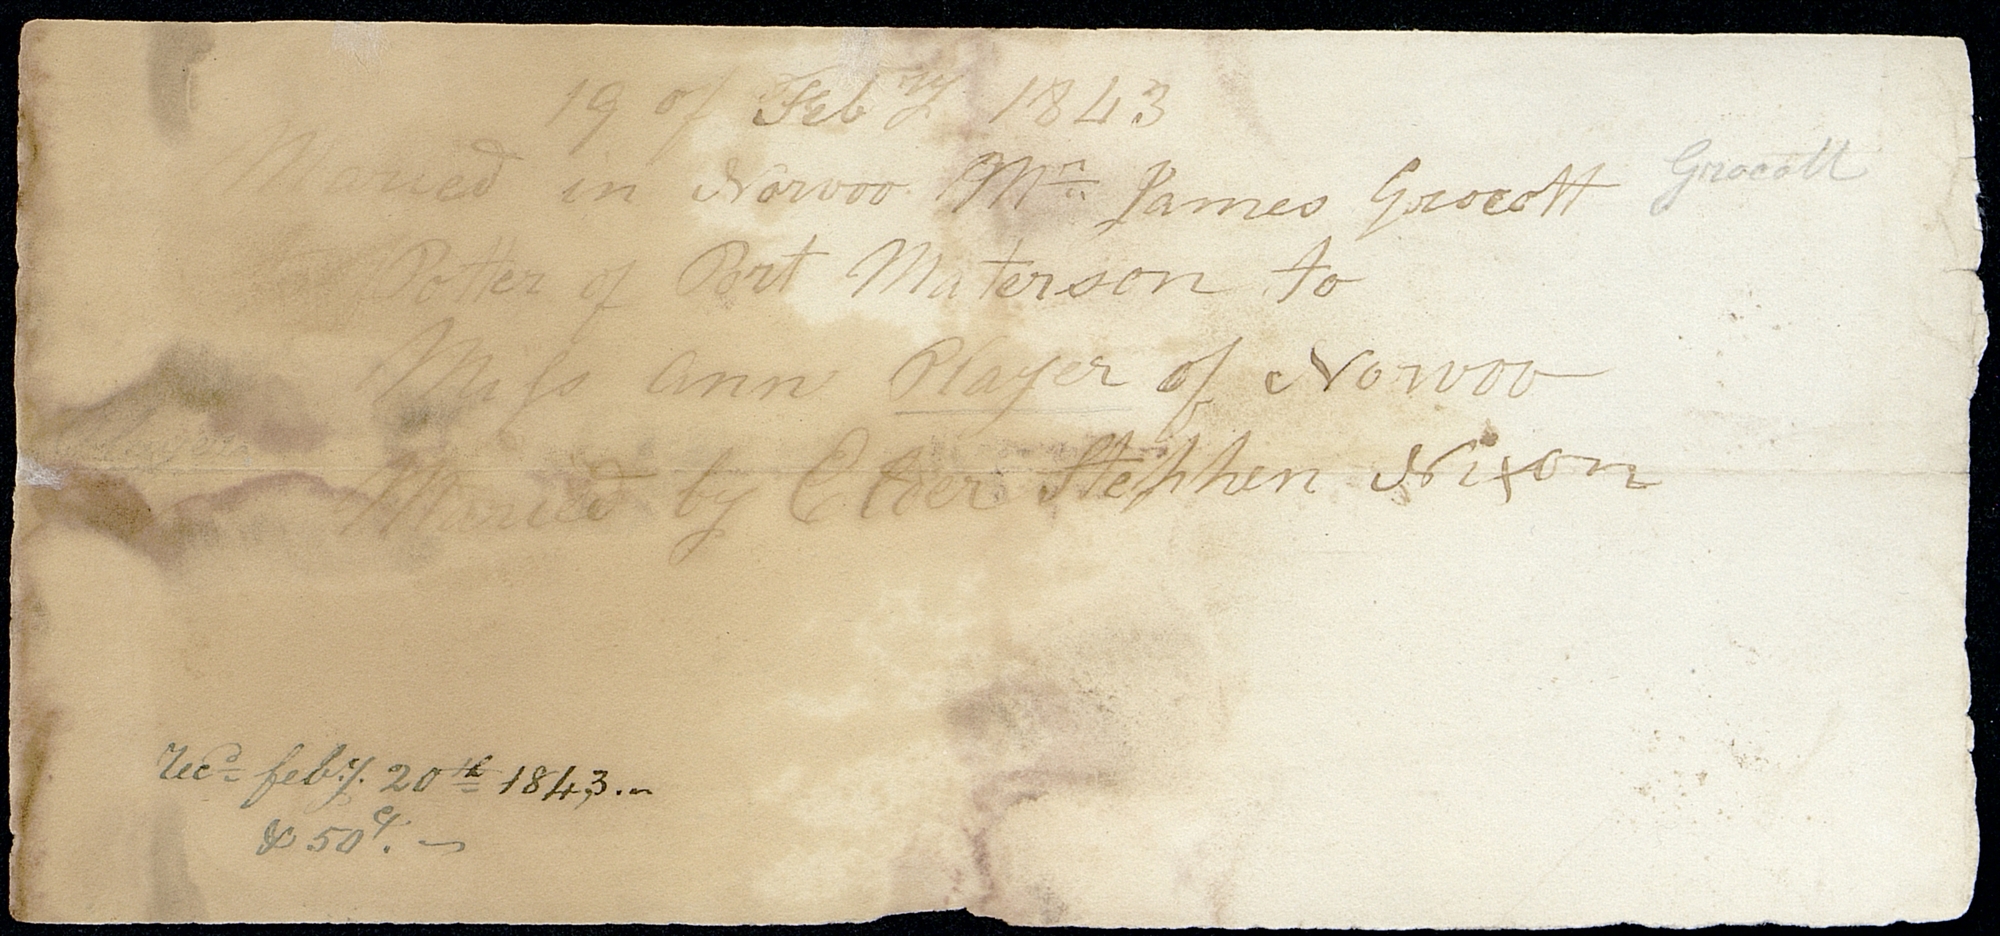 19 of Feb ry 1843
Maried in Norvoo Mr. James Grocott
Grocott
Potter of Port Materson to
Miss Ann Player of Norvoo
Maried by Elder Stephen Nixon
Recd feby. 20th 1843.
& 50c.